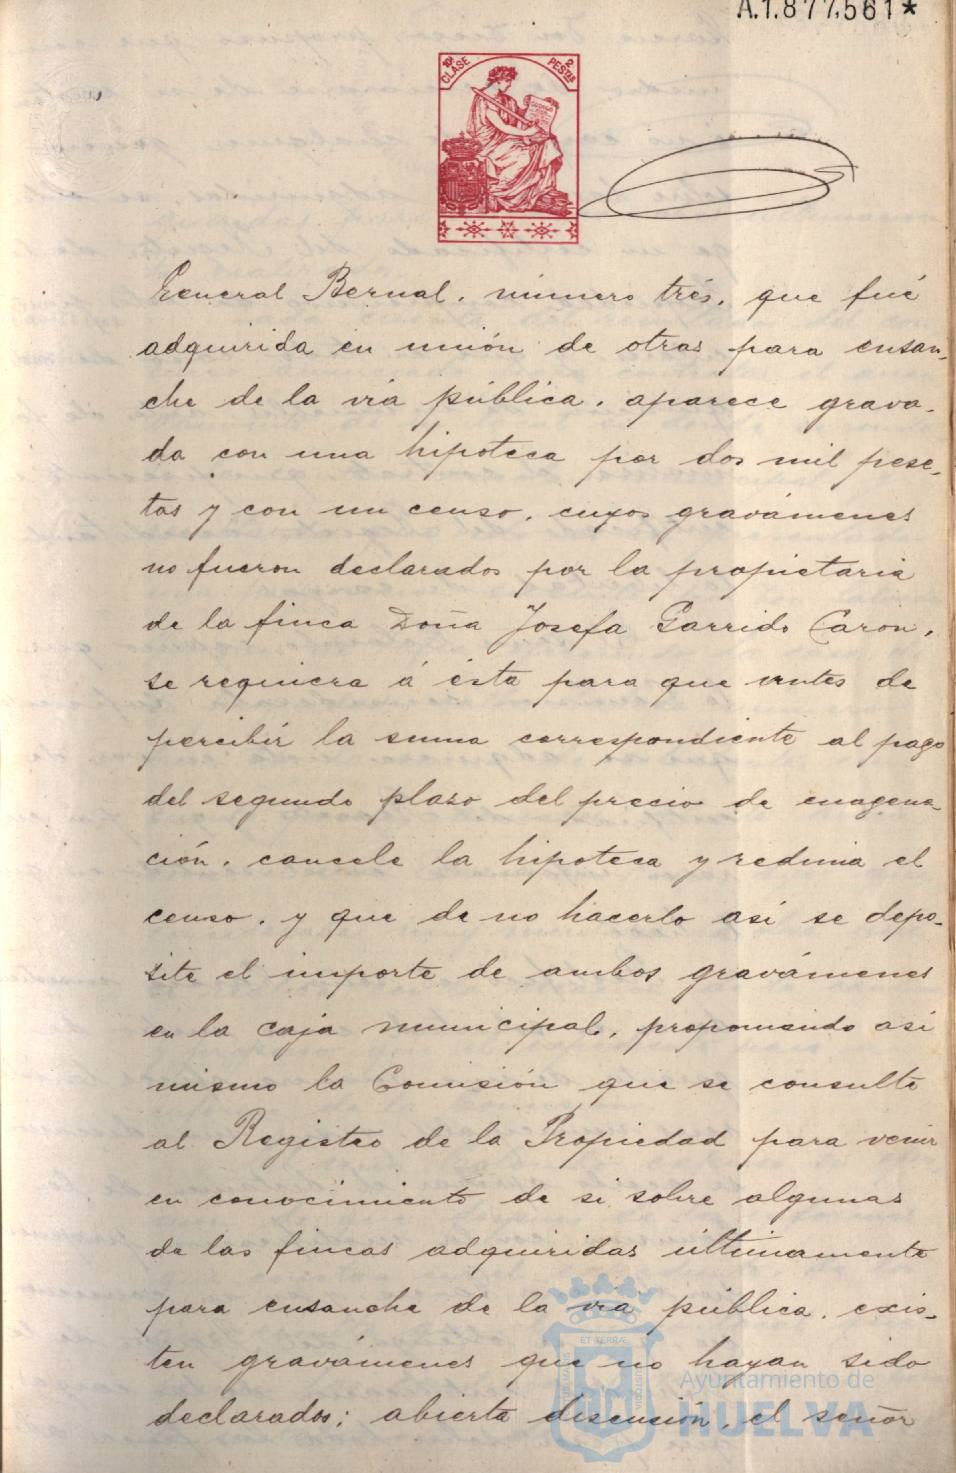 A.1.877,561*
10ª CLASE 2 PESTAS
General Bernal, número trés, que fué
adquirida en unión de otras para ensan-
che de la via pública, aparece grava-
da con una hipoteca por dos mil pese-
tas y con un censo, cuyos gravámenes
no fueron declarados por la propietaria
de la finca Doña Josefa Garrido Caron,
se requiera á ésta para que antes de
percibir la suma correspondiente al pago
del segundo plazo del precio de enagena
ción, cancele la hipoteca y redima el
censo, y que de no hacerlo así se depo-
site el importe de ambos gravámenes
en la caja municipal, proponiendo asi
mismo la Comisión que se consulte
al Registro de la Propiedad para venir
en conocimiento de si sobre algunas
de las fincas adquiridas últimamente
para ensanche de la via pública, exis-
ten gravámenes que no hayan sido
declarados; abierta discusión, el señor
ET TERRÆ
Ayuntamiento de
HUELVA